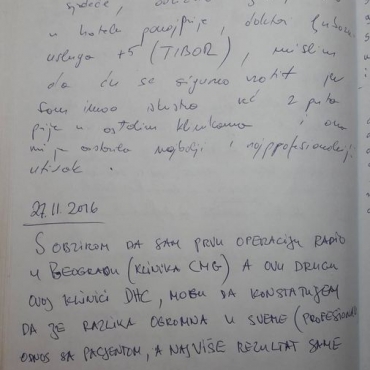 u hotelu
usluga +5 (TIBOR), mislim
da ću se sigurno vratit jer
sam imao iskustvo već 2 puta
prije u ostalim klinikama i ova
mi je ostavila najbolji i najprofesionalniji
utisak.
27.11.2016
S OBZIROM DA SAM PRVU OPERACIJU RADIO
U BEOGRADU (KLINIKA CMG) A OVU DRUGU
OVOJ KLINICI DHC, MOGU DA KONSTATUJEM
DA JE RAZLIKA OGROMNA U SVEMU (PROFESIONA
ODNOS SA PACJENTOM, A NAJVIŠE REZULTAT SAME